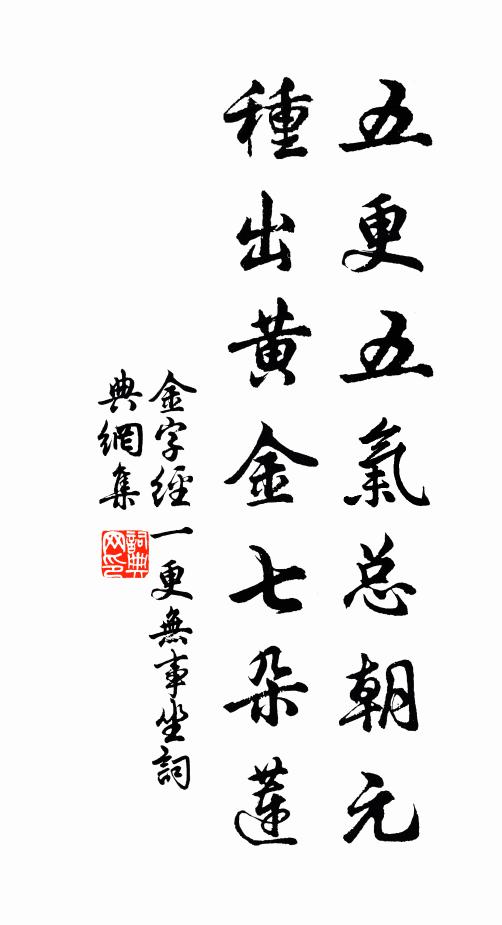 五更五氣总朝元
種出黄金七朵蓮
金字經一更無事坐詞
典網集
詞典
网印